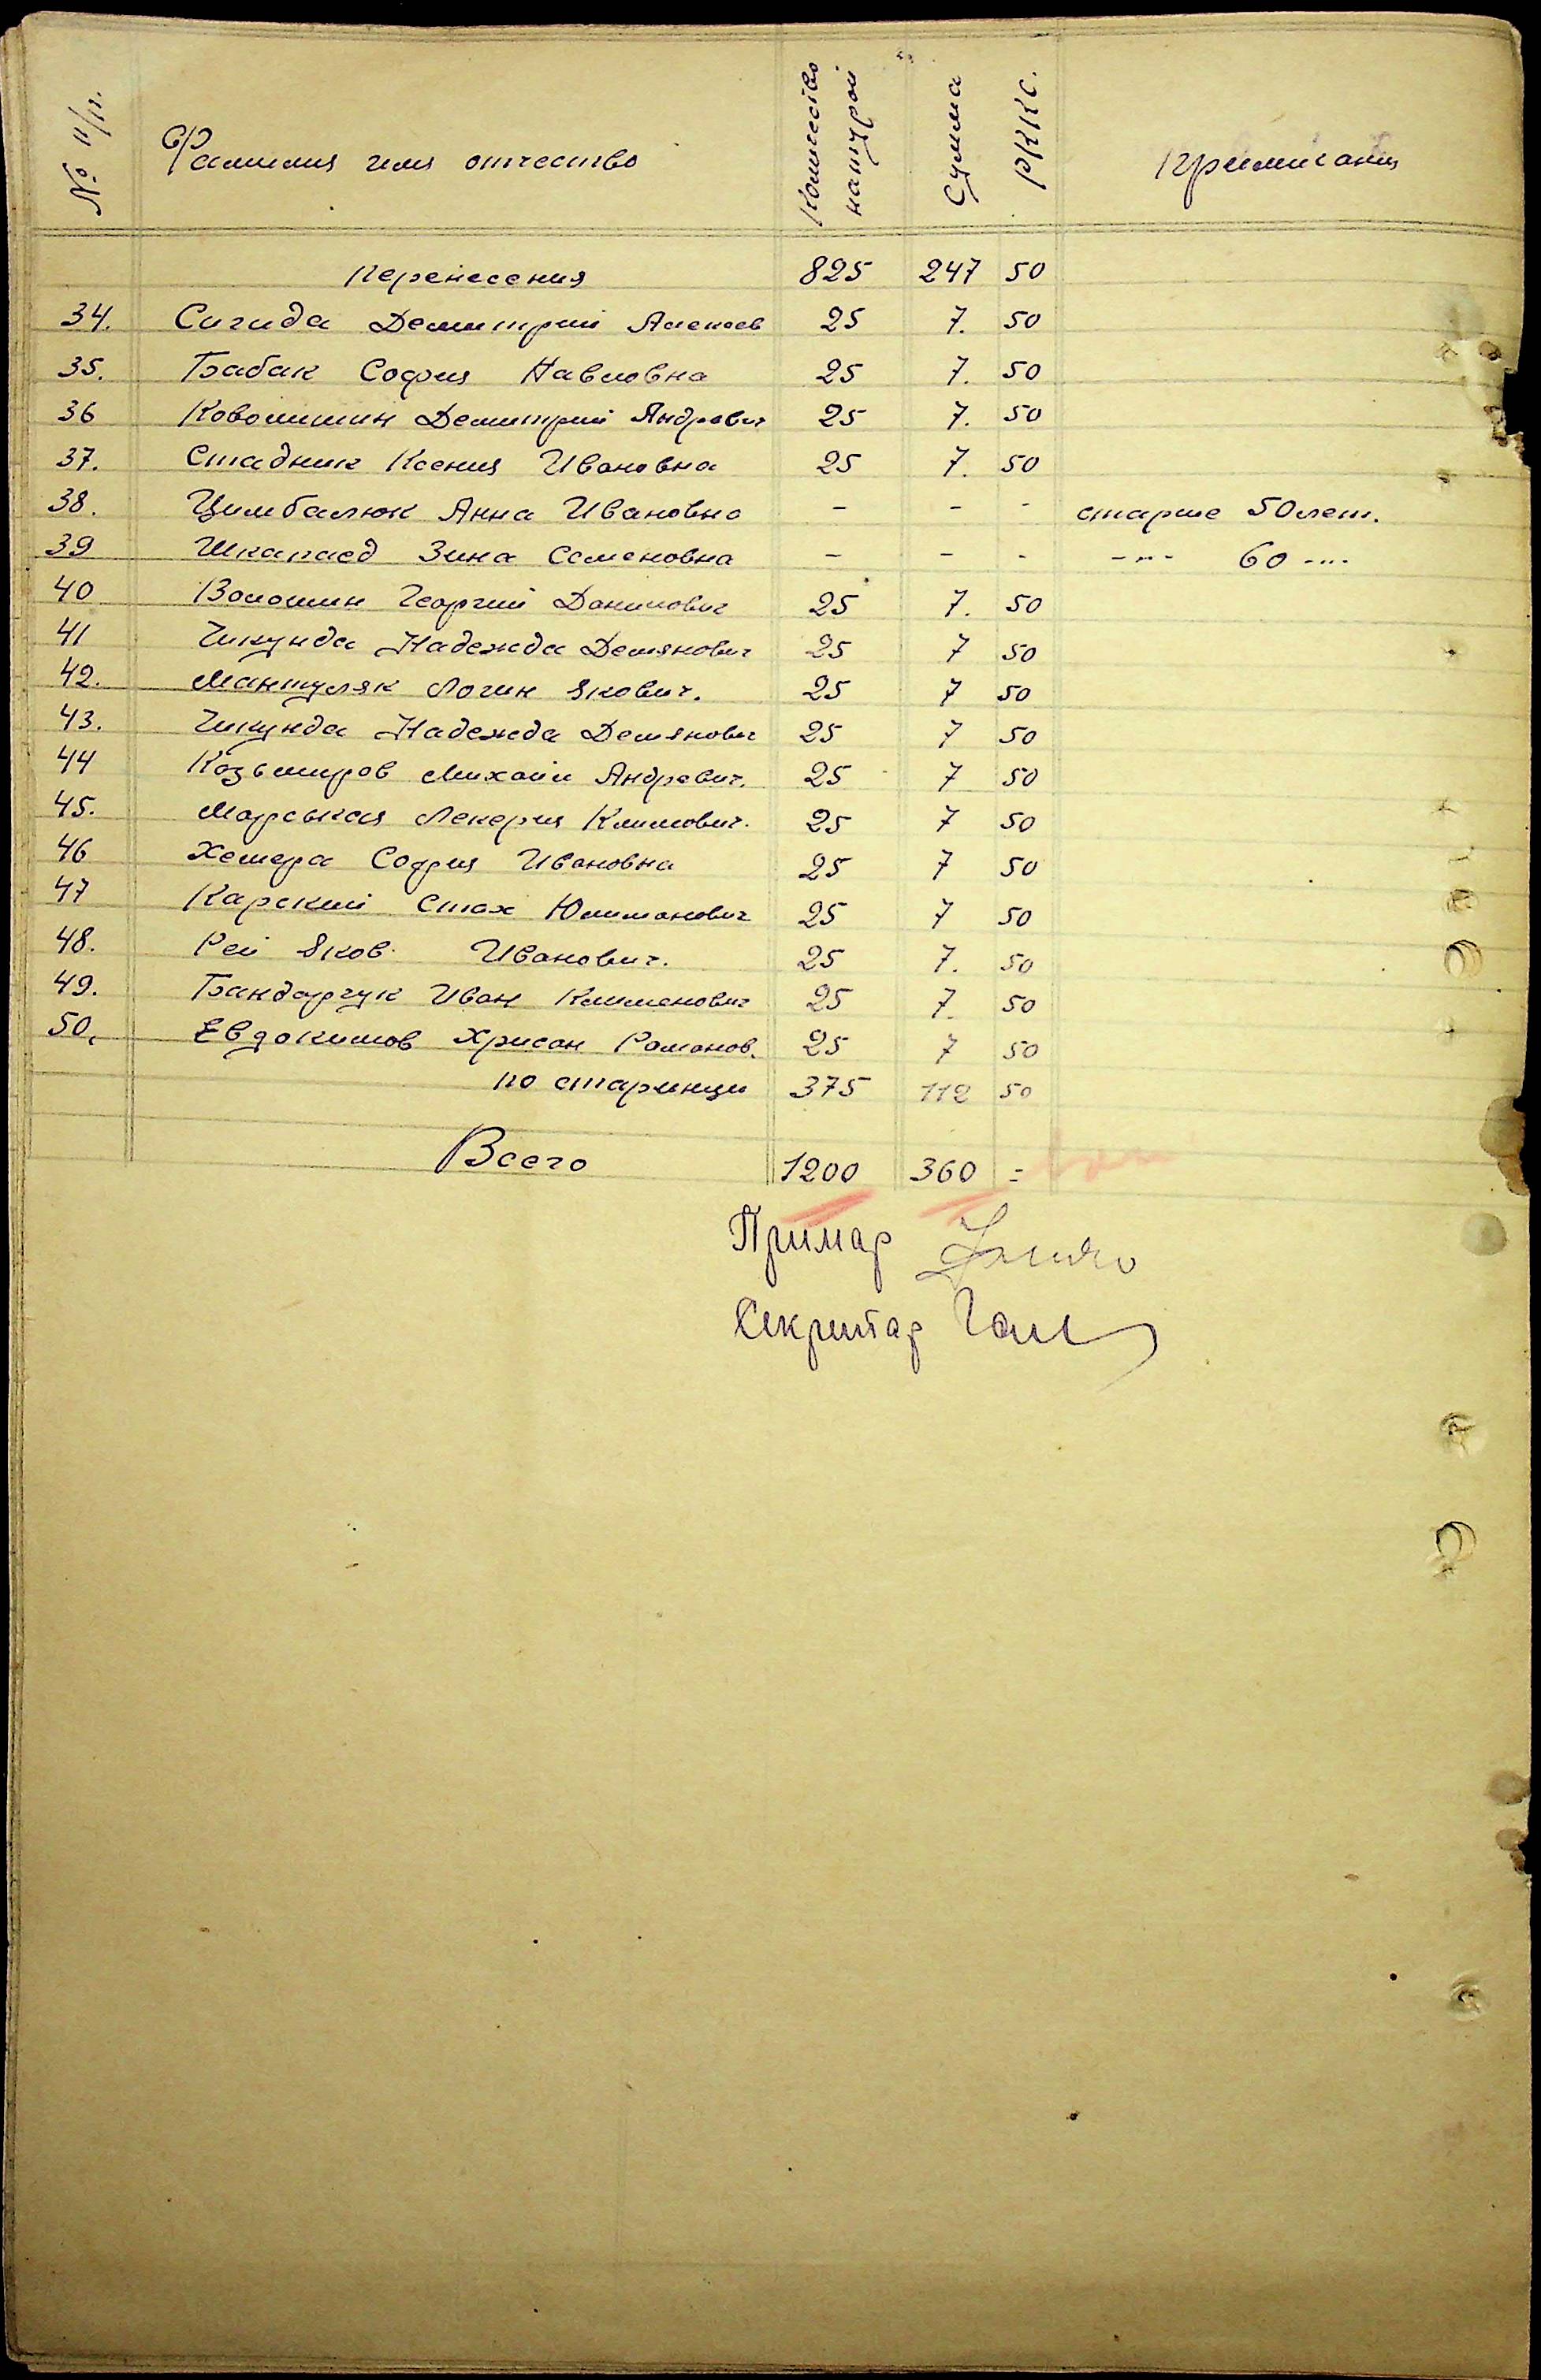 № п/п. Фамилия имя отчество Количество натурой Сумма РККС. Примичания
Перенесения 825 247 50
34. Сигида Демитрий Алексев 25 7. 50
35. Бабак София Павловна 25 7. 50
36 Коволишин Демитрий Андревич 25 7. 50
37. Стадник Ксения Ивановна 25 7. 50
38. Цимбалюк Анна Ивановна - - - старше 50 лет.
39 Шкапаед Зина Семеновна - - - -"- 60 -"-
40 Волошин Георгий Данилович 25 7. 50
41 Чикунда Надежда Демянович 25 7 50
42. Мантуляк Логин Якович. 25 7 50
43. Чикунда Надежда Демянович 25 7 50
44 Козьмиров Михаил Андревич. 25 7 50
45. Марськая Лекерия Климович. 25 7 50
46 Хемера София Ивановна 25 7 50
47 Карский Стах Юлиманович 25 7 50
48. Рей Яков Иванович. 25 7. 50
49. Бандарчук Иван Клименович 25 7. 50
50. Евдокимов Хрисан Романов. 25 7 50
по стариници 375 112 50
Всего 1200 360 =
Примар
Секритар